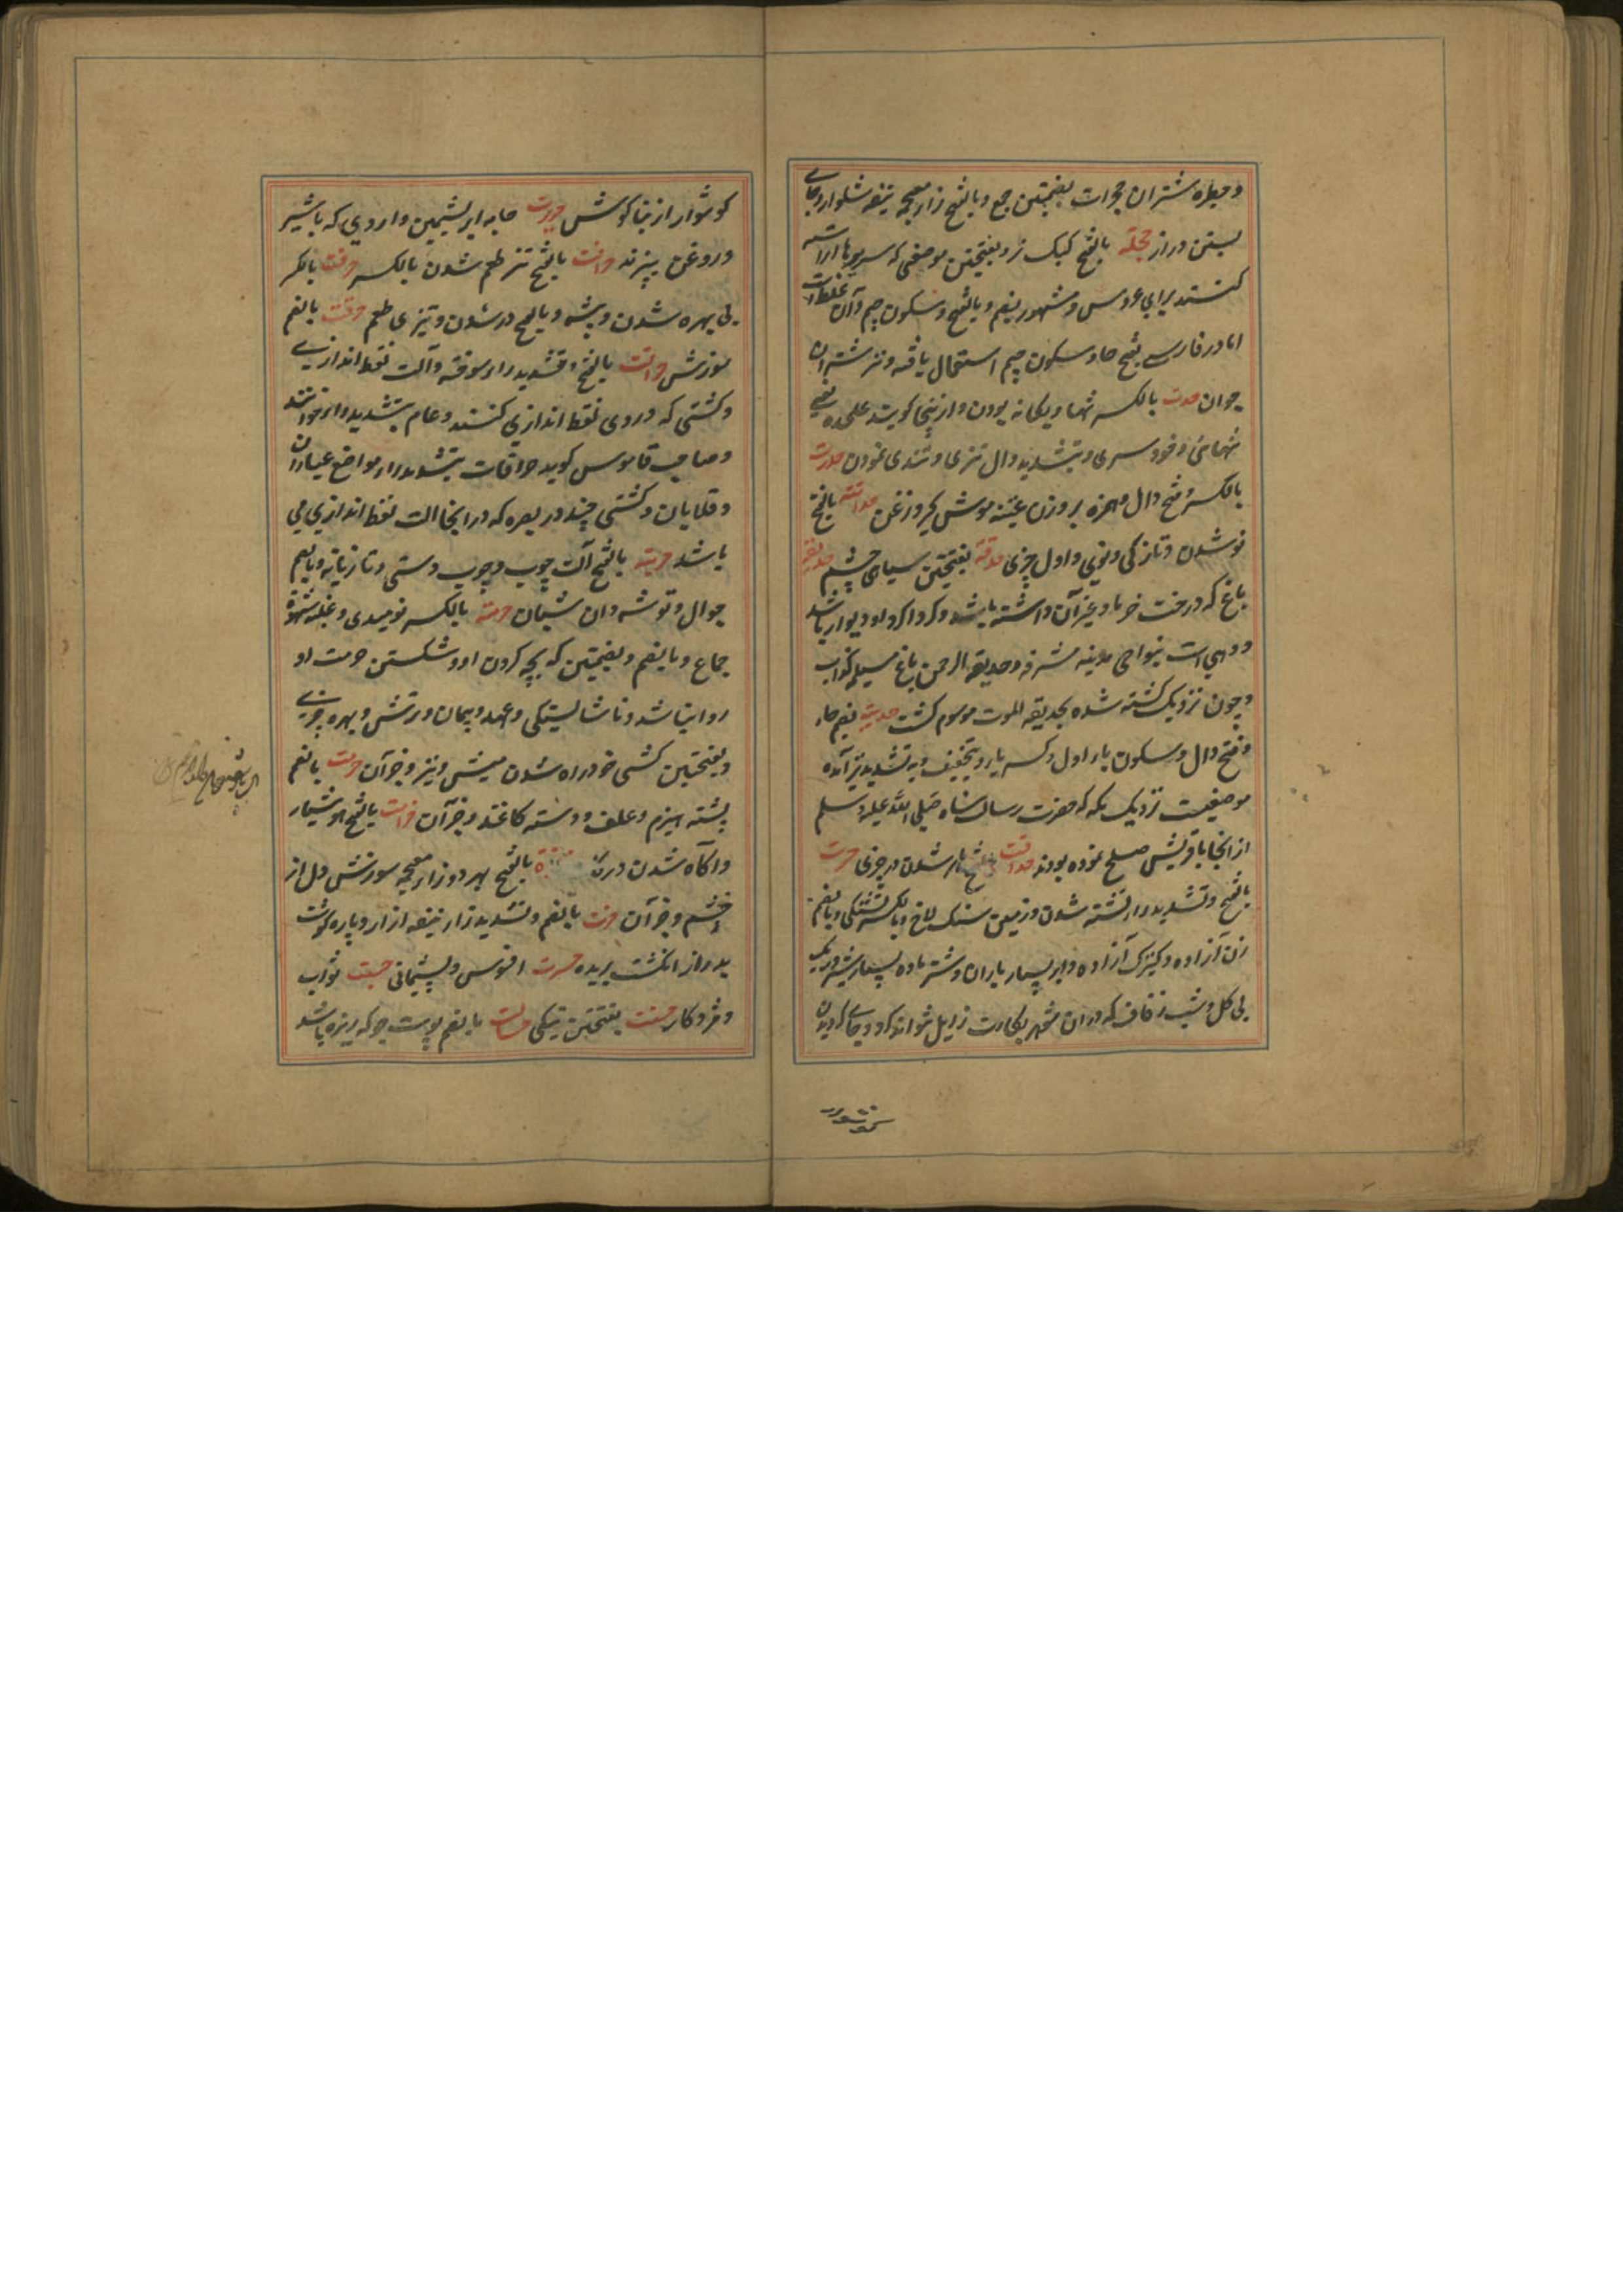 و حیطره شتران حجرات بضمتین جمع و بالفتح زار معجمه نیفه شلوار و جای
بستن دراز حجلة بالفتح کبک نر و بفتحتین موضعی که بسریرها آراسته
کنند برای عروس و مشهور بضم و بالفتح و سکون جیم و آن غلط است
اما در فارسی بفتح حا و سکون جیم استعمال یافته و نیز شتران
جوان حدت بالکسر تنها و یکانه بودن و ازینجا کویند علیحده یعنی
تنهائی و خودسری و بتشدید دال تیزی و تندی نمودن حدرت
بالکسر و فتح دال مهمزه بر وزن عنبه موش کیر و زغن حداثت بالفتح
نو شدن و تازکی و نوی و اول چیزی حدقه بفتحتین سیاهی چشم حدیقه
باغ که درخت خرما و غیر آن داشته باشد و کرداکرد او دیوار باشد
و دهی است بنواحی مدینه مشرفه و حدیقه الرحمن باغ مسیلمه کذاب
و چون نزدیک کشته شده بحدیقه الموت موسوم کشت حدیبیه بضم حاء
و فتح دال و سکون یاء اول و کسر باء و بتخفیف و به تشدید نیز آمده
موضعیست نزدیک مکه که حضرت رسالت پناه صلی الله علیه و سلم
از انجا با قریش صلح نموده بودند حداقت بالفتح ماهر شدن در چیزی حرت
بالفتح و تشدید راء تشنه شدن و زمین سنک لاخ و بالکسر تشنکی و بالضم
زن آزاده و کنیزک آزاده و ابر بسیار باران و شتر ماده بسیار شیر و ریک
بی کل و شب زفاف که در ان شوهر بکارت زایل نتواند کرد و جای کردیدن
کوشوار
کوشوار از بناکوش حریرت جامه ابریشمین و اردی که با شیر
و روغن بپزند حرافت بالفتح تیز طعم شدن بالکسر حرفت بالکسر
بی بهره شدن و پیشه و بالفتح در شدن و تیزی طعم حرقت بالضم
سوزش حراقت بالفتح و تشدید راء سوخته و آلت نفط اندازی
و کشتی که در وی نفط اندازی کنند و عام بتشدید راء خوانند
و صاحب قاموس کوید حراقات بتشدید راء مواضع عیاران
و قلایان و کشتی چند در بصره که در انجا الت نفط اندازی می
باشد حربة بالفتح آلت چوب و چوب دستی و تازیانه و بالضم
جوال و توشه دان شبان حرمة بالکسر نومیدی و غلبه شهوة
جماع و بالضم و بضمتین که بچه کردن او و شکستن حرمت او
روا نباشد و ناشایستکی و عهد و پیمان و ترتش و بهره چیزی
و بفتحتین کشنی خواه شدن میش و بز و جز آن حزمت بالضم
پشته هیزم و علف و دسته کاغذ و جز آن حزامت بالفتح هوشیار
و اکاه شدن در بالفتح بهر دو زار معجمه سوزش دل از
خشم و جز آن حزت بالضم و تشدید زار نیفه ازار و پاره کوشت
بدرازا انکشت بریده حسرت افسوس و پشیمانی حسبت ثواب
و مزد کار حسنت بفتحتین نیکی حسالت بالضم پوست جو که ریزه باشد